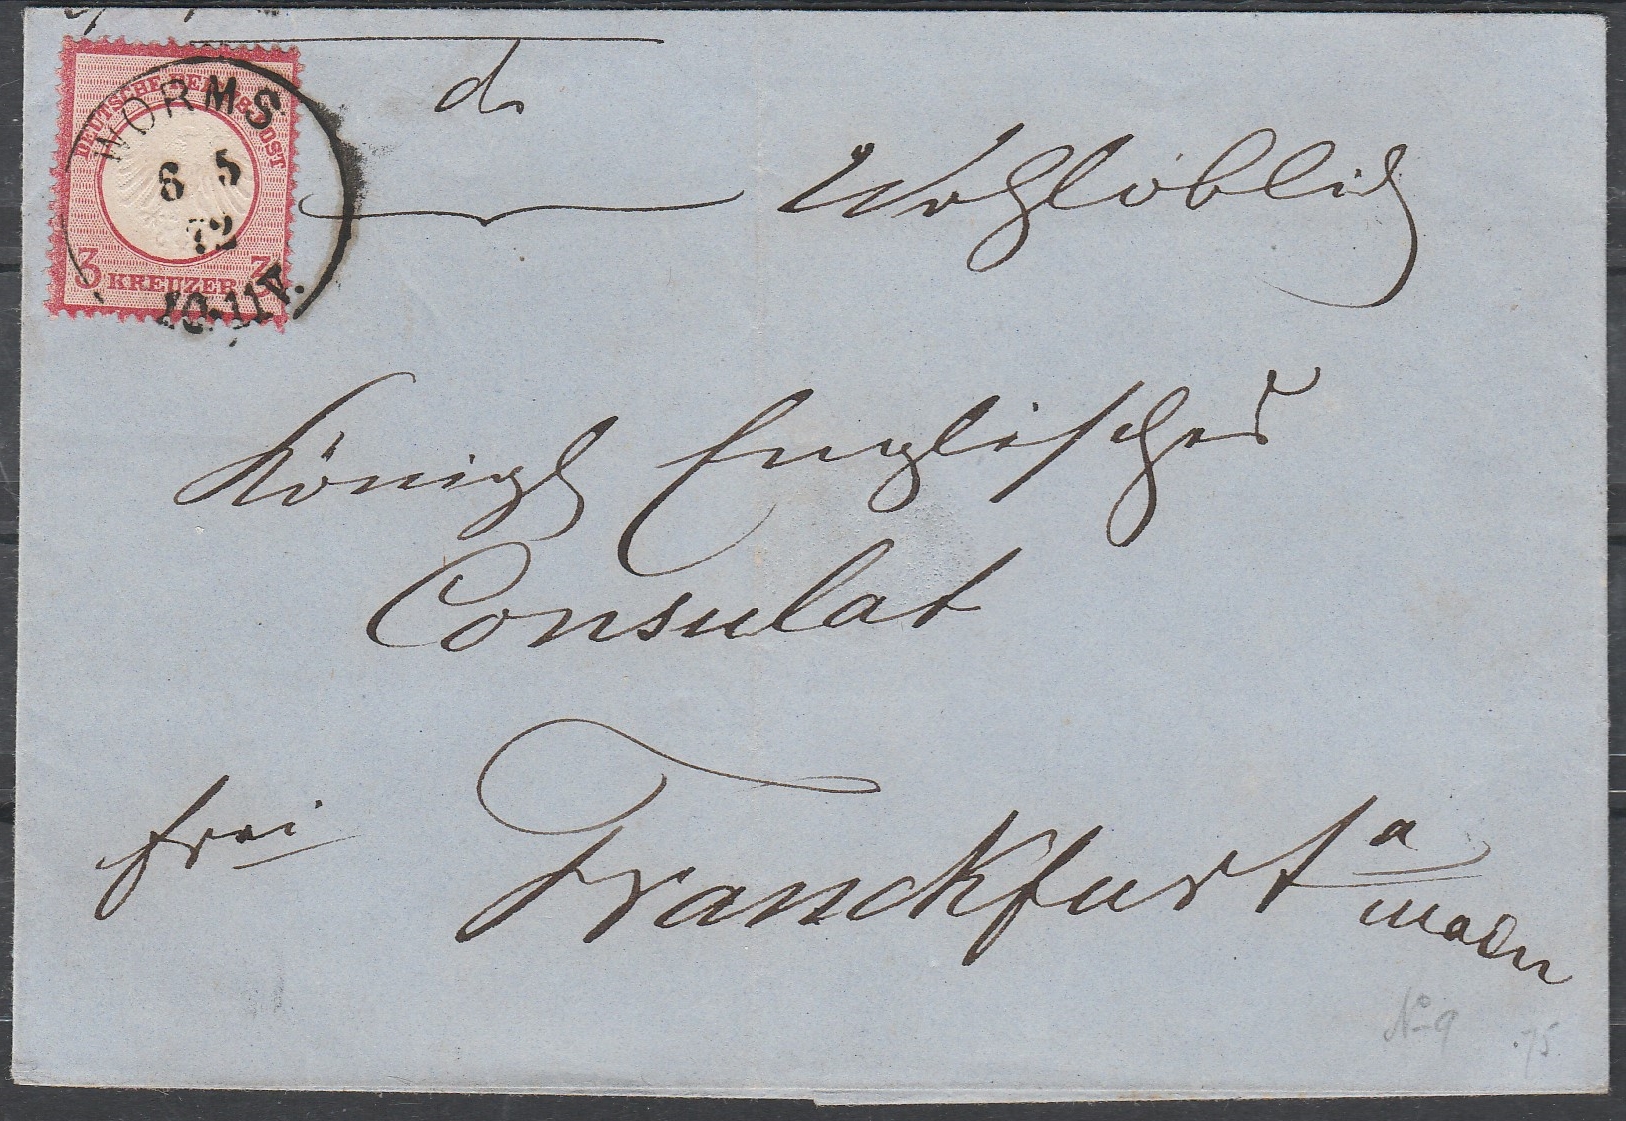 DEUTSCHE REICHS-POST
3 KREUZER 3
WORMS
6 5
72
10-11V.
Wohllöblich
Königl Englisches
Consulat
frei
Franckfurt a
main
No 9
75